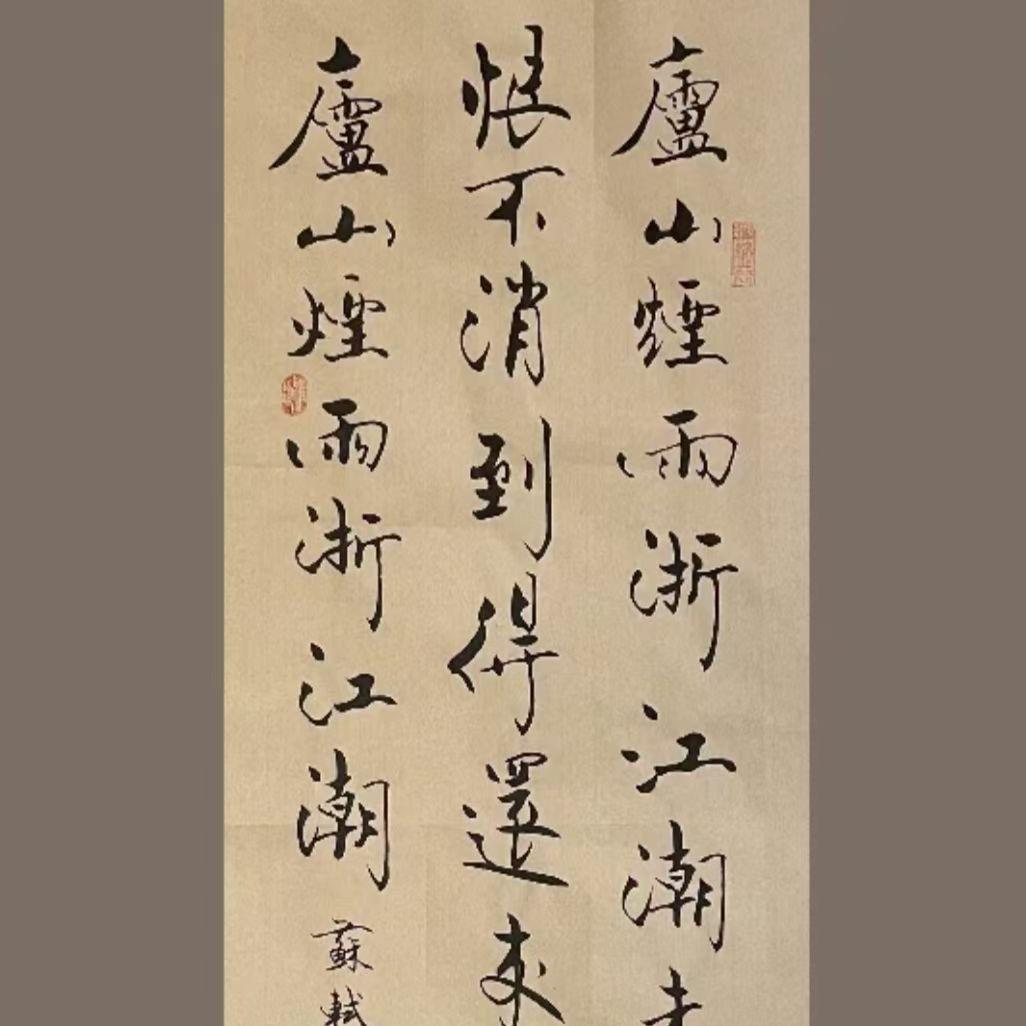 廬山煙雨浙江潮未
恨不消到得還來
廬山煙雨浙江潮
蘇軾